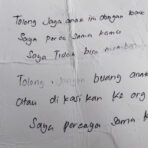 Tolong jaga anak ini dengan baik
Saya percaya sama kamu
Saya Tidak bisa
Tolong jangan buang anak
atau di kasikan ke org
Saya percaya sama k